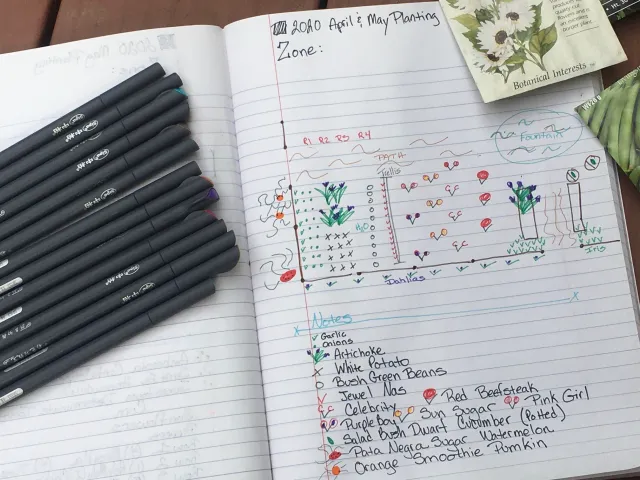 2020 April & May Planting
Zone:
Botanical Interests
Fountain
R1 R2 R3 R4
PATH
Trellis
H2O
Dahlias
Iris
Notes
Garlic
Onions
Artichoke
White Potato
Bush Green Beans
Jewel Nas
Celebrity Red Beefsteak
Purple Boy Sun Sugar Pink Girl
Salad Bush Dwarf Cucumber (Potted)
Pata Negra Sugar Watermelon
Orange Smoothie Pumkin